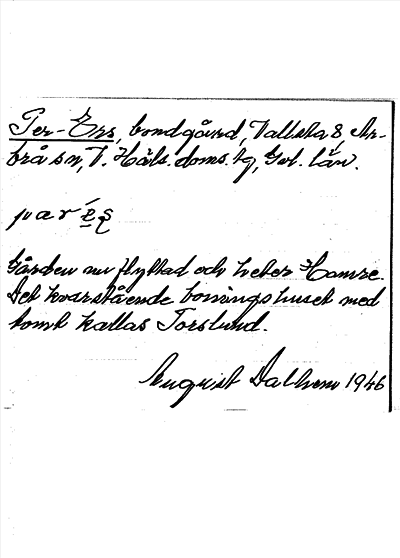 Per-Ers, bondgård, Vallsta 8, Ar-
brå sn, V. Häls. doms. tg, Gvl. län.
pær ẹ́ʂ
Gården nu flyttad och heter Hamre.
Det kvarstående boningshuset med
tomt kallas Torslund.
August Dalhem 1946